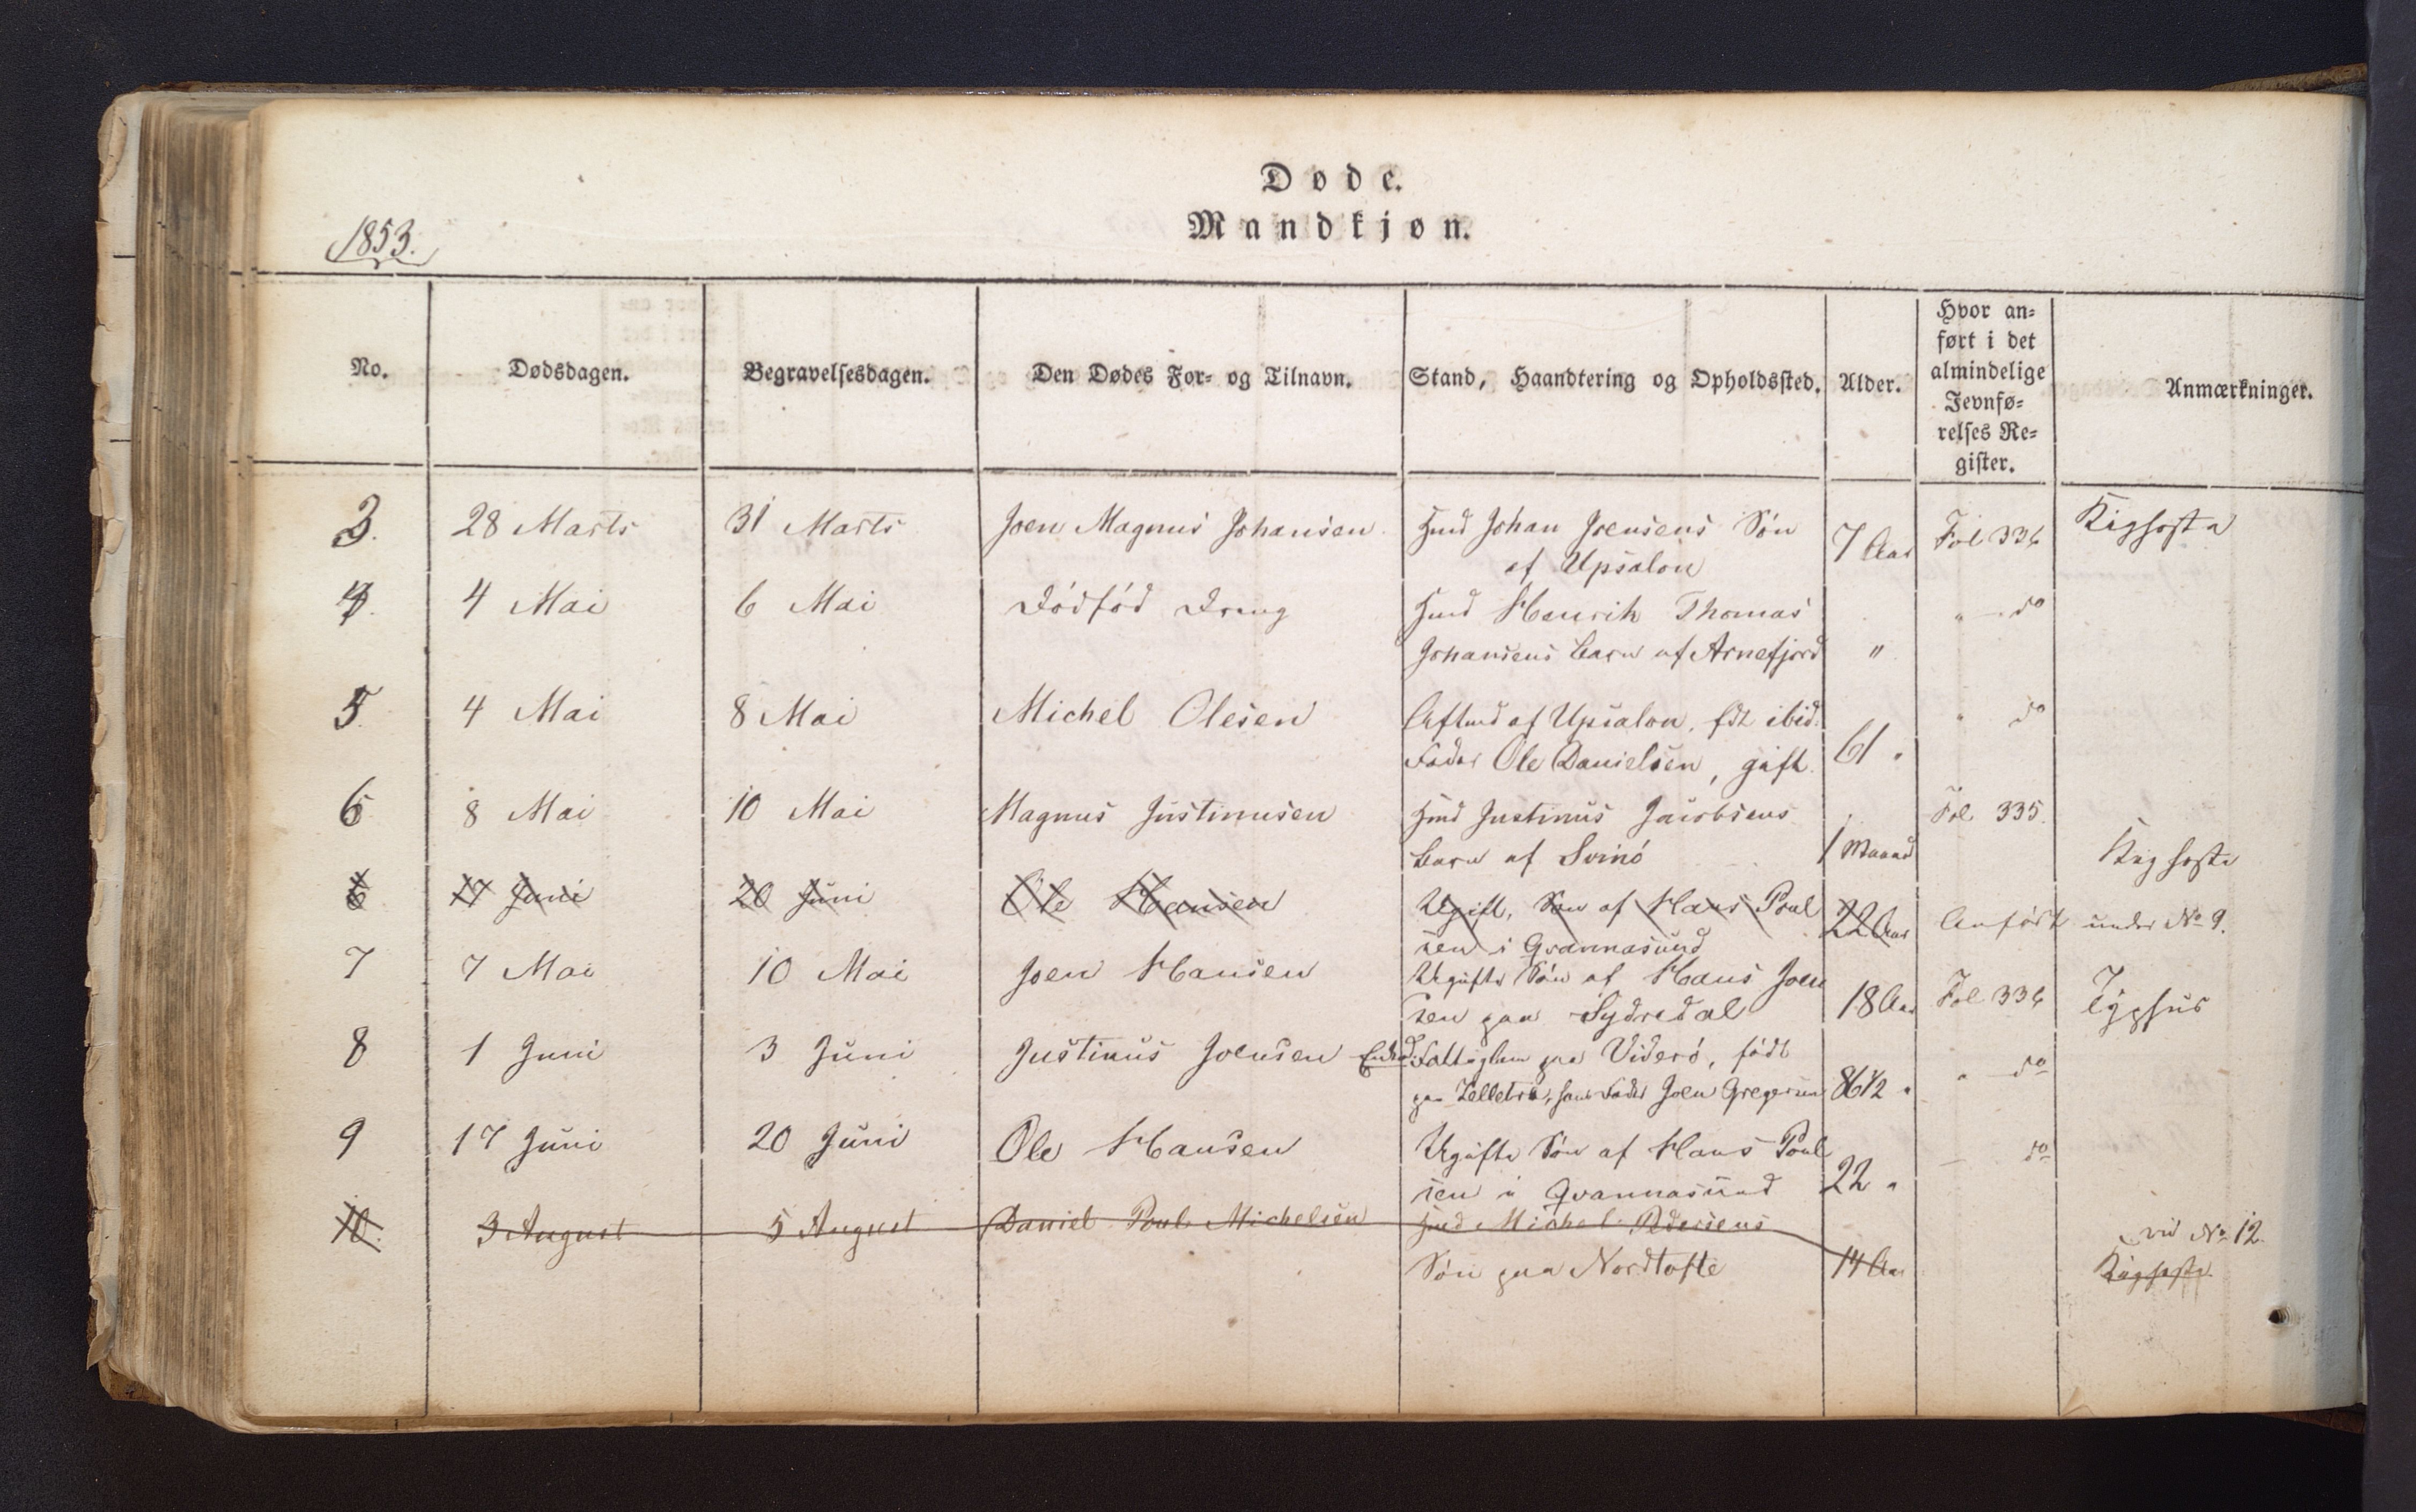 Døde.
Mandkjøn.
1853.
No.
Dødsdagen.
Begravelsesdagen.
Den Dødes For- og Tilnavn.
Stand, Haandtering og Opholdssted.
Alder.
Hvor an-
ført i det
almindelige
Jevnfø-
relses Re-
gister.
Anmærkninger.
3. 28 Marts 31 Marts Joen Magnus Johansen Huusmd Johan Joensens Søn 7 Aar Fol 334 Kighoste
af Upsalon
4. 4 Mai 6 Mai Dødfød Dreng Henrik Thomas " do
Johansens Barn af Arnefjord "
5. 4 Mai 8 Mai Michel Olesen Aftmd af Upsalon, fdt ibid. " do
Fader Ole Danielsen, gift. 61 "
6 8 Mai 10 Mai Magnus Justinusen Justinus Jacobsens Fol 335.
Barn af Svinø 1 Maaned Kighoste
6 17 Juni 20 Juni Ole Hansen Ugift, Søn af Hans Poul 22 Aar Anført under No 9.
sen i Qvannasund
7 7 Mai 10 Mai Joen Hansen Ugifte Søn af Hans Joen
sen paa Sydredal 18 Aar Fol 334 Typhus
8 1 Juni 3 Juni Justinus Joensen Enkemd. Fattiglem paa Viderø, født
paa Selletræ, hans Fader Joen Gregersen 86 1/2 " " do
9 17 Juni 20 Juni Ole Hansen Ugifte Søn af Hans Poul — do
sen i Qvannasund 22 "
10. 3 August 5 August Daniel Poul Michelsen Michel Pedersens vid No 12.
Søn paa Nordtofte 14 Aar Kighoste